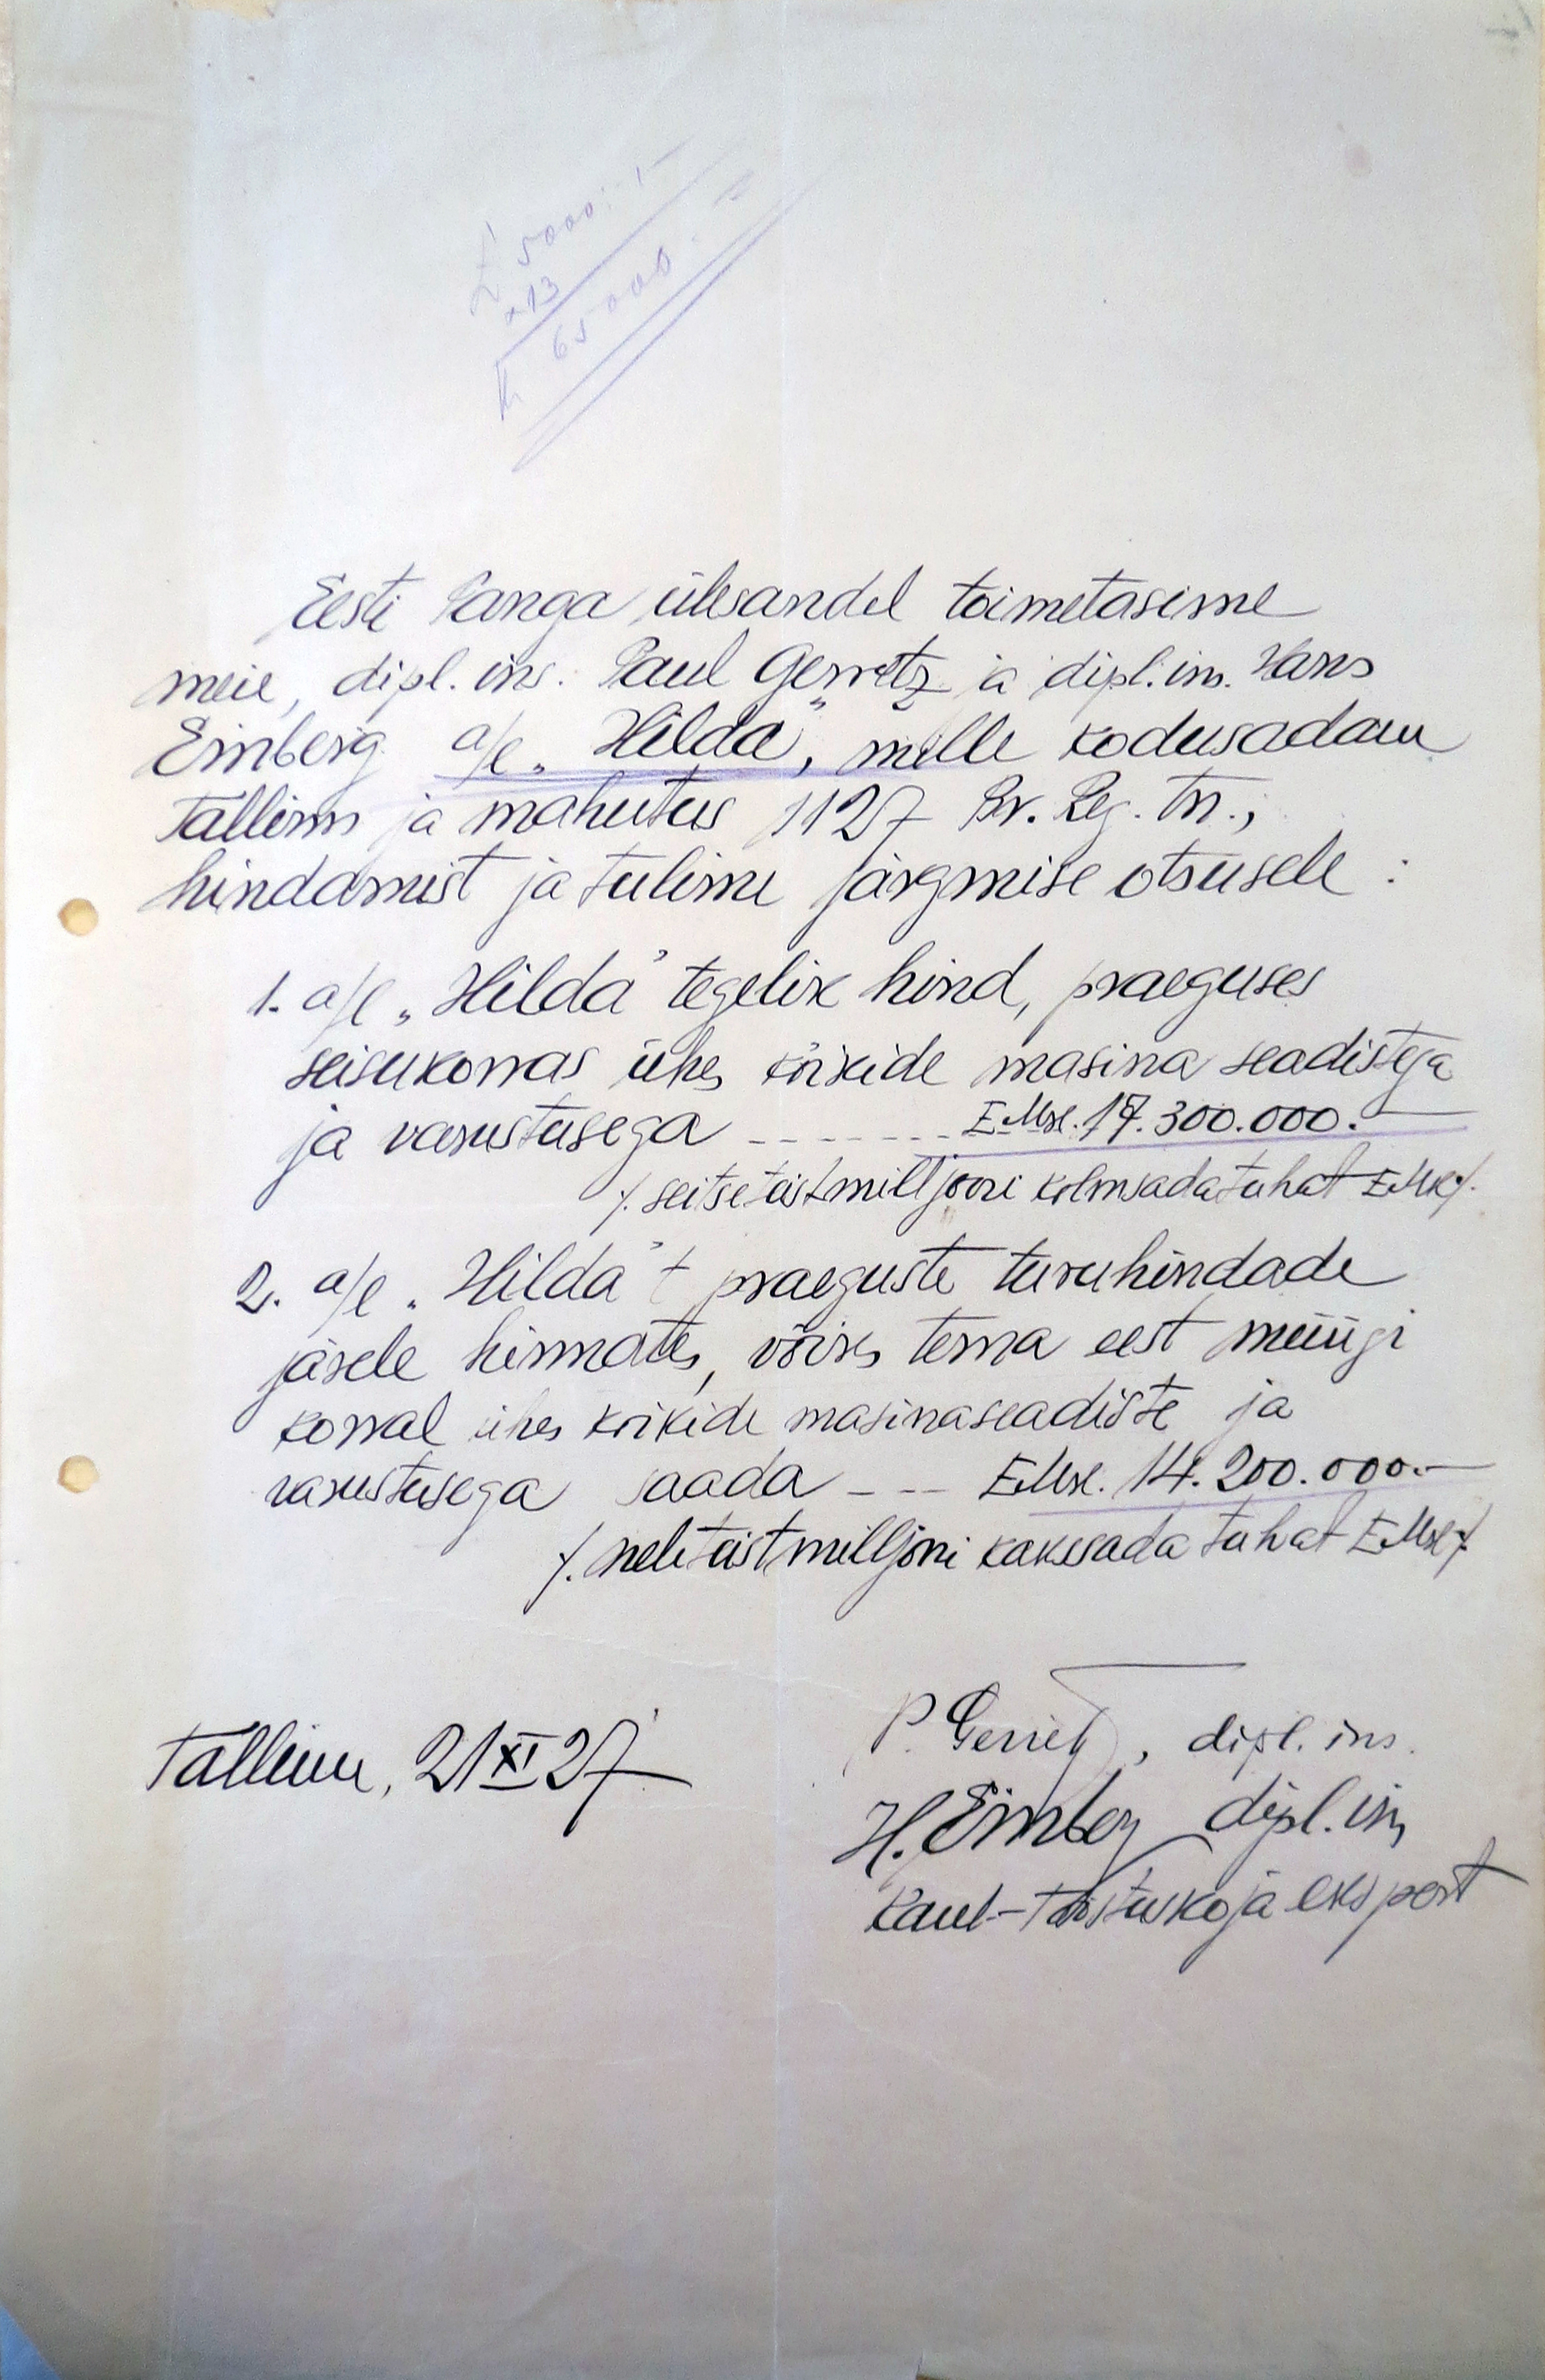 £ 5000:-
×13
65000.=
Eesti Panga ülesandel toimetasime
meie, dipl. ins. Paul Gerretz ja dipl. ins. Hans
Einberg a/l. „Hilda”, mille kodusadam
Tallinn ja mahutus 1127 Br. Reg. Tn.,
hindamist ja tulime järgmise otsusele:
1. a/l „Hilda” tegelik hind, praeguses
seisukorras ühes kõikide masina seadistega
ja varustusega ------- EMk. 17.300.000.—
/. seitseteistmilljoni kolmsadatuhat EMk/.
2. a/l „Hilda” praeguste turuhindade
järele hinnates, võiks tema eest müügi
korral ühes kõikide masinaseadiste ja
varustusega saada --- EMk. 14.200.000.—
/. neliteistmilljoni kakssada tuhat EMk/.
Tallinn, 21 XI 27
P. Gerretz, dipl. ins.
H. Einberg dipl. ins
Kaub-Tööstuskoja ekspert